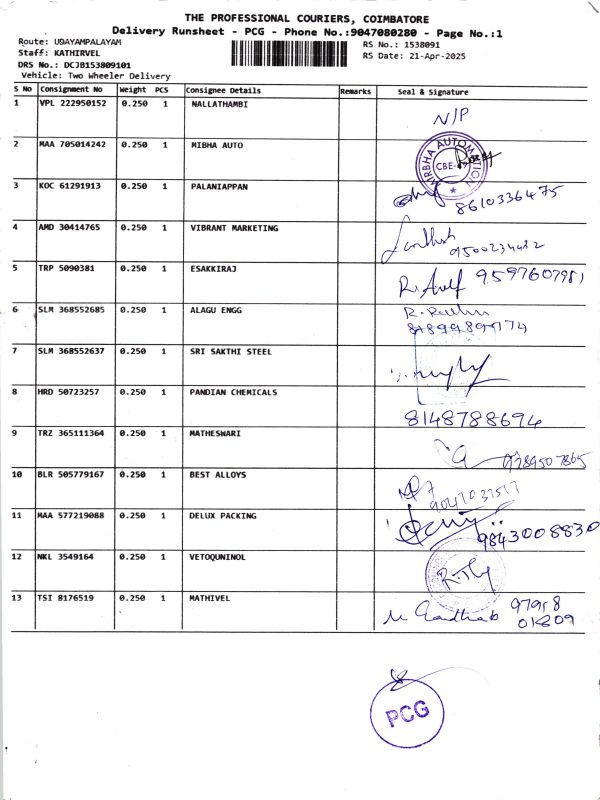 THE PROFESSIONAL COURIERS, COIMBATORE
Delivery Runsheet - PCG - Phone No.:9047080280 - Page No.:1
Route: UDAYAMPALAYAM
Staff: KATHIRVEL
DRS No.: DCJB153809101
Vehicle: Two Wheeler Delivery
RS No.: 1538091
RS Date: 21-Apr-2025
S No Consignment No Weight PCS Consignee Details Remarks Seal & Signature
1 VPL 222950152 0.250 1 NALLATHAMBI N/P
2 MAA 705014242 0.250 1 MIBHA AUTO
MIRBHA AUTOMATION
CBE
3 KOC 61291913 0.250 1 PALANIAPPAN 8610336475
4 AMD 30414765 0.250 1 VIBRANT MARKETING
5 TRP 5090381 0.250 1 ESAKKIRAJ 9597607981
6 SLM 368552685 0.250 1 ALAGU ENGG
7 SLM 368552637 0.250 1 SRI SAKTHI STEEL
8 HRD 50723257 0.250 1 PANDIAN CHEMICALS 8148788694
9 TRZ 365111364 0.250 1 MATHESWARI 9789507865
10 BLR 505779167 0.250 1 BEST ALLOYS
11 MAA 577219088 0.250 1 DELUX PACKING 9843008830
12 NKL 3549164 0.250 1 VETOQUNINOL
13 TSI 8176519 0.250 1 MATHIVEL
PCG